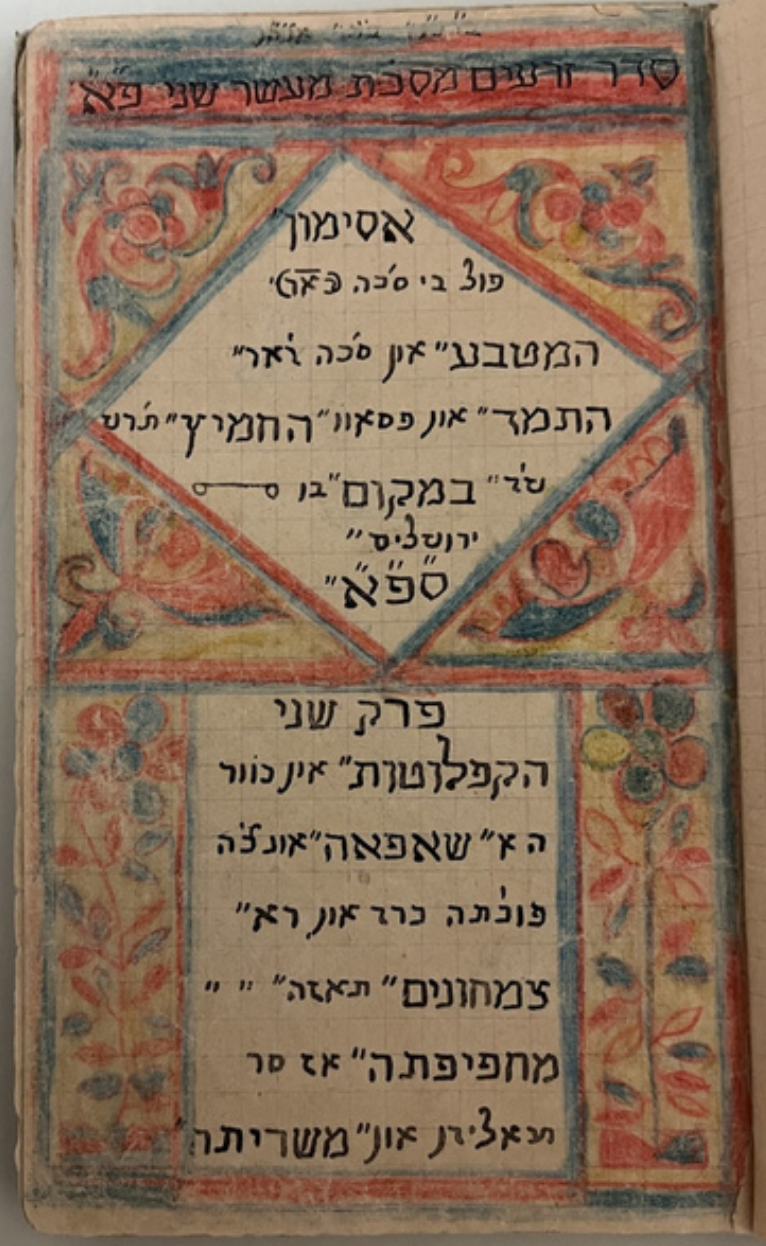 סדר זרעים מסכת מעשר שני פ״א
אסימון״
פול בי סכה
המטבע״ און סכה ואר״
התמד״ און פסאוו״ החמיץ״ תרש
במקום״ בו
ירושלים״
ספ״א״
פרק שני
הקפלוטות״ אין כוור
ה א״ שאפאה״
פוכתה ברד און רא״
צמחונים״ תאזה״ ״ ״
מחפיפתה״ אז סר
און״ משריתה״